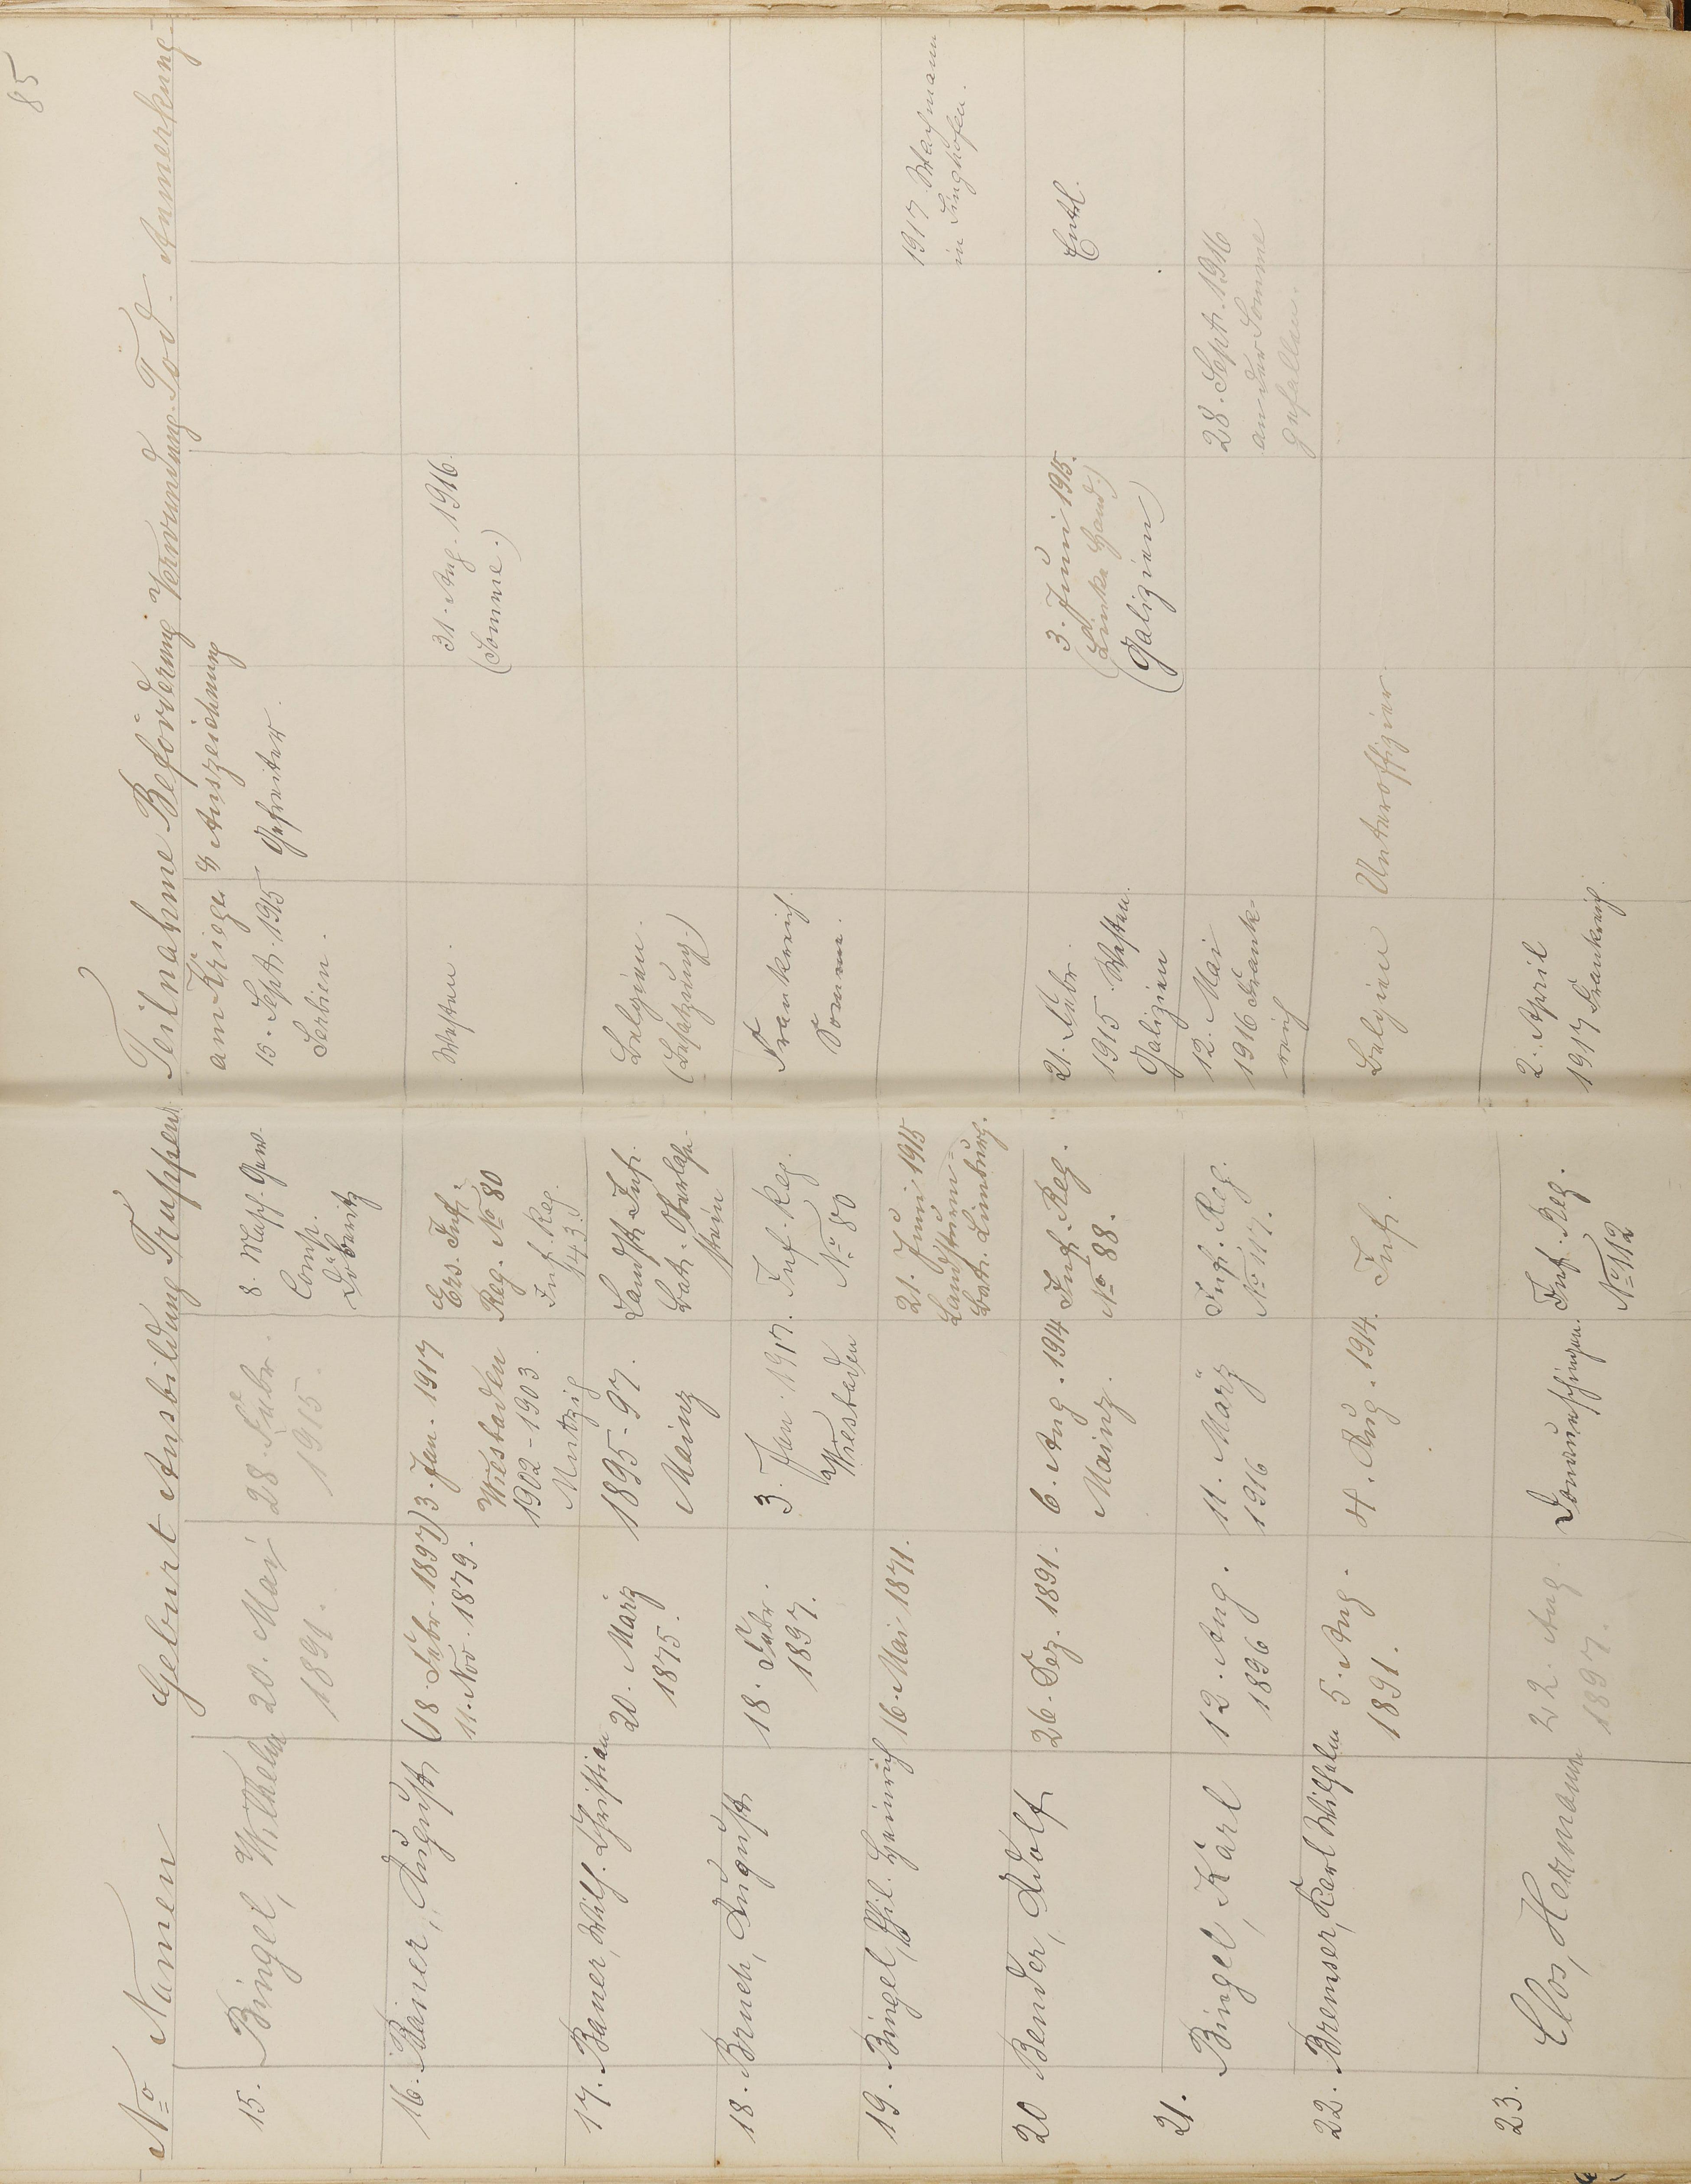 85
No Namen Geburt Ausbildung Truppen Teilnahme am Kriege Beförderung & Auszeichnung Verwundung Tod Anmerkung
15. Bingel, Wilhelm 20. Mai 28. Febr. 8. Masch. Gew. 15. Sept. 1915 Gefreiter.
1891. 1915. Comp. Serbien.
Döberitz
16. Bauer, August (18. Febr. 1897) 3. Jan. 1917 Ers. Inf. Westen. 31. Aug. 1916.
11. Nov. 1879. Wiesbaden Reg. No 80 (Somme.)
1902-1903. Inf. Reg.
Mutzig 143.
17. Bauer, Wilh. Christian 20. März 1895-97. Landst. Inf. Belgien.
1875. Mainz Bat. Oberlahn- (Besatzung.)
stein
18. Bruch, August 18. Febr. 3. Jan. 1917. Inf. Reg. Frankreich
1897. Wiesbaden No 80 Somme.
19. Bingel, Phil. Heinrich 16. Mai 1871. 21. Juni 1915 1917 Wachmann
Landsturm- in Singhofen.
Bat. Limburg.
20 Bender, Adolf 26. Dez. 1891. 6. Aug. 1914 Inf. Reg. 21. Febr. 3. Juni 1915. Entl.
Mainz. No 88. 1915 Westen. (Linke Hand.)
Galizien (Galizien)
21. Bingel, Karl 12. Aug. 11. März Inf. Reg. 12. Mai 28. Sept. 1916
1896 1916 No 117. 1916 Frank- an der Somme
reich gefallen.
22. Bremser, Karl Wilhelm 5. Aug. 4. Aug. 1914. Inf. Belgien Unteroffizier
1891.
23. Clos, Hermann 22. Aug. Donaueschingen. Inf. Reg. 2. April
1897. No 112 1917 Frankreich.